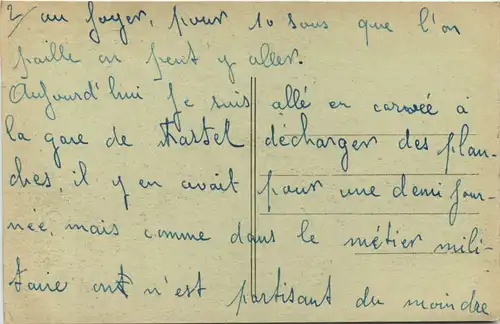 2/ au foyer, pour 10 sous que l'on
paille on peut y aller.
Aujourd'hui je suis allé en corvée à
la gare de Kastel décharger des plan-
ches, il y en avait pour une demi jour-
née, mais comme dans le métier mili-
taire ont n'est partisant du moindre